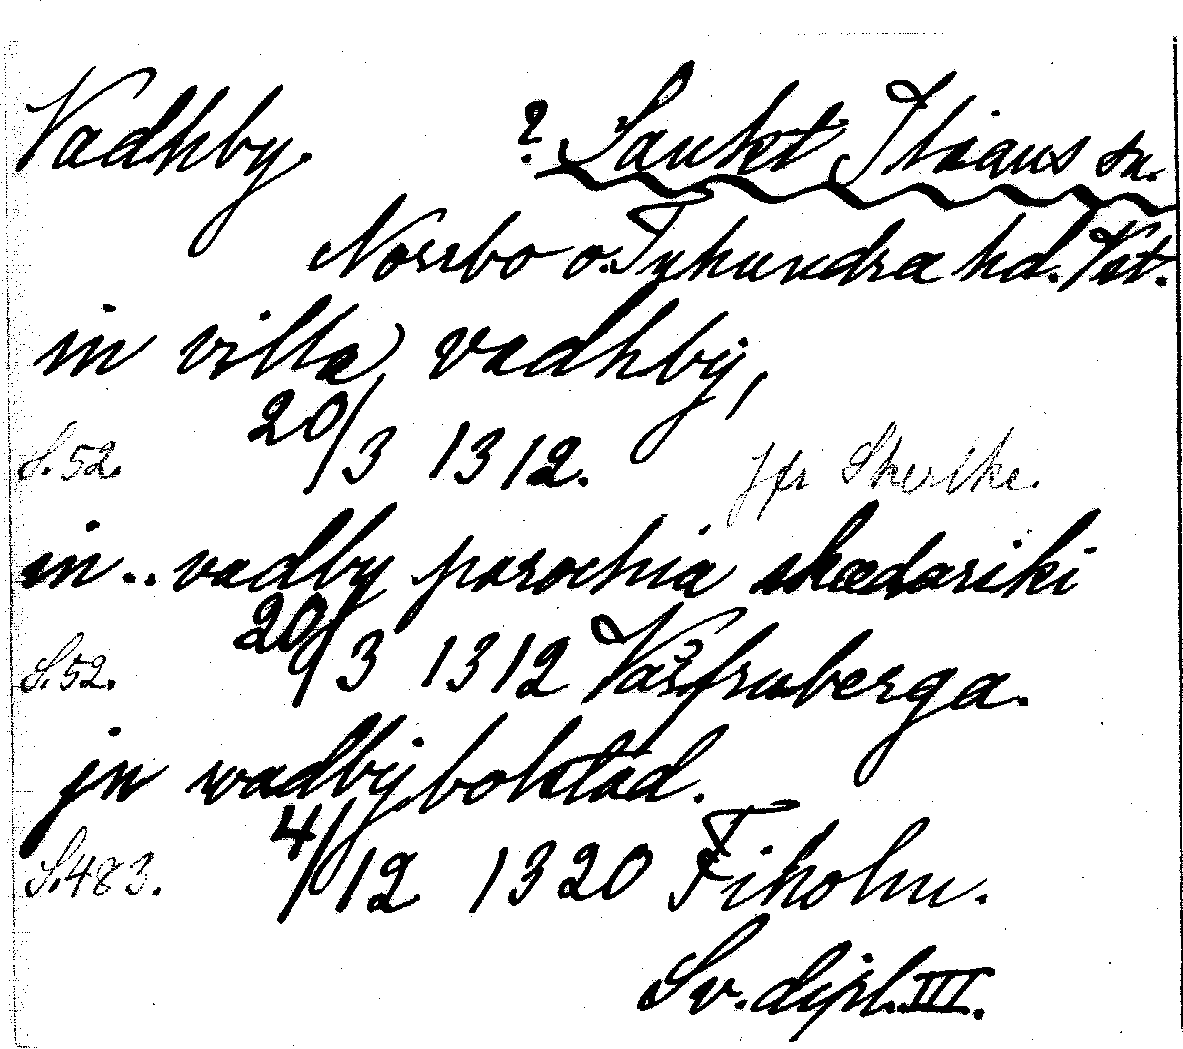 Vadhby. ? Sankt Ilians sn.
Norrbo o. Tuhundra hd. Vst.
in villa vadhby,
S. 52. 20/3 1312. Jfr Skerike.
in .. vadby parochia skædariki
S. 52. 20/3 1312 Vårfruberga.
jn wadby bolstad.
S. 483. 4/12 1320 Fiholm.
Sv. dipl. III.